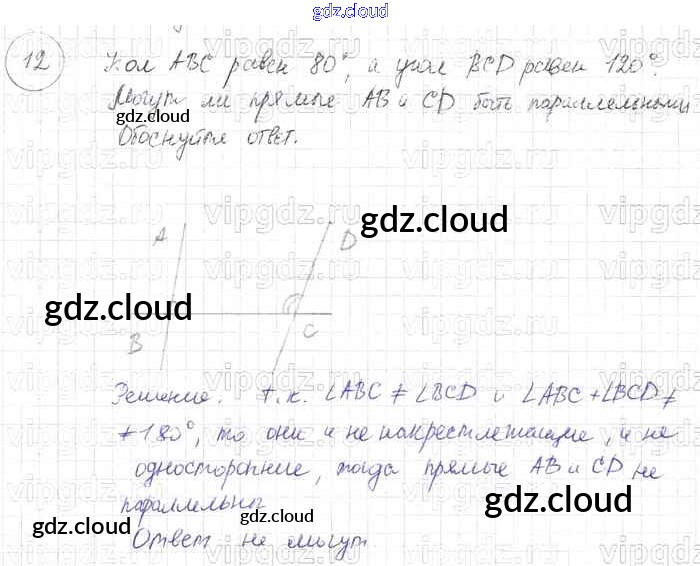 gdz.cloud
gdz.cloud
12 Угол ABC равен 80°, а угол BCD равен 120°.
Могут ли прямые AB и CD быть параллельными
gdz.cloud
Обоснуйте ответ.
vipgdz.ru vipgdz.ru vipgdz.ru
gdz.cloud
A D
gdz.cloud
B C
Решение. т.к. ∠ABC ≠ ∠BCD и ∠ABC+∠BCD ≠
≠180°, то они и не накрестлежащие, и не
односторонние, тогда прямые AB и CD не
параллельны
gdz.cloud gdz.cloud gdz.cloud
Ответ не могут.